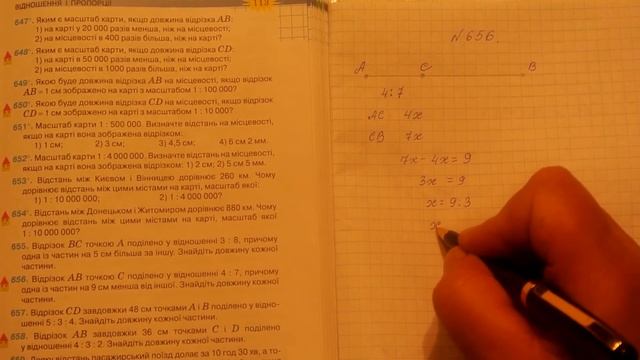 ВІДНОШЕННЯ І ПРОПОРЦІЇ
113
647°. Яким є масштаб карти, якщо довжина відрізка AB:
1) на карті у 20 000 разів менша, ніж на місцевості;
2) на місцевості в 400 разів більша, ніж на карті?
648°. Яким є масштаб карти, якщо довжина відрізка CD:
1) на карті в 50 000 разів менша, ніж на місцевості;
2) на місцевості в 1000 разів більша, ніж на карті?
649°. Якою буде довжина відрізка AB на місцевості, якщо відрізок
AB = 1 см зображено на карті з масштабом 1 : 100 000?
650°. Якою буде довжина відрізка CD на місцевості, якщо відрізок
CD = 1 см зображено на карті з масштабом 1 : 10 000?
651°. Масштаб карти 1 : 500 000. Визначте відстань на місцевості,
якщо на карті вона зображена відрізком:
1) 1 см; 2) 3 см; 3) 4,5 см; 4) 6 см 2 мм.
652°. Масштаб карти 1 : 4 000 000. Визначте відстань на місцевості,
якщо на карті вона зображена відрізком: 1) 2 см; 2) 5 см 5 мм.
653°. Відстань між Києвом і Вінницею дорівнює 260 км. Чому
дорівнює відстань між цими містами на карті, масштаб якої:
1) 1 : 10 000 000; 2) 1 : 4 000 000?
654°. Відстань між Донецьком і Житомиром дорівнює 880 км. Чому
дорівнює відстань між цими містами на карті, масштаб якої
1 : 10 000 000?
655. Відрізок BC точкою A поділено у відношенні 3 : 8, причому
одна із частин на 5 см більша за іншу. Знайдіть довжину кожної
частини.
656. Відрізок AB точкою C поділено у відношенні 4 : 7, причому
одна із частин на 9 см менша від іншої. Знайдіть довжину кожної
частини.
657. Відрізок CD завдовжки 48 см точками A і B поділено у відно-
шенні 5 : 3 : 4. Знайдіть довжину кожної частини.
658. Відрізок AB завдовжки 36 см точками C і D поділено
у відношенні 4 : 3 : 2. Знайдіть довжину кожної частини.
поїзд долає за 10 год 30 хв, а то-
N 656.
A C B
4:7
AC 4x
CB 7x
7x - 4x = 9
3x = 9
x = 9:3
x